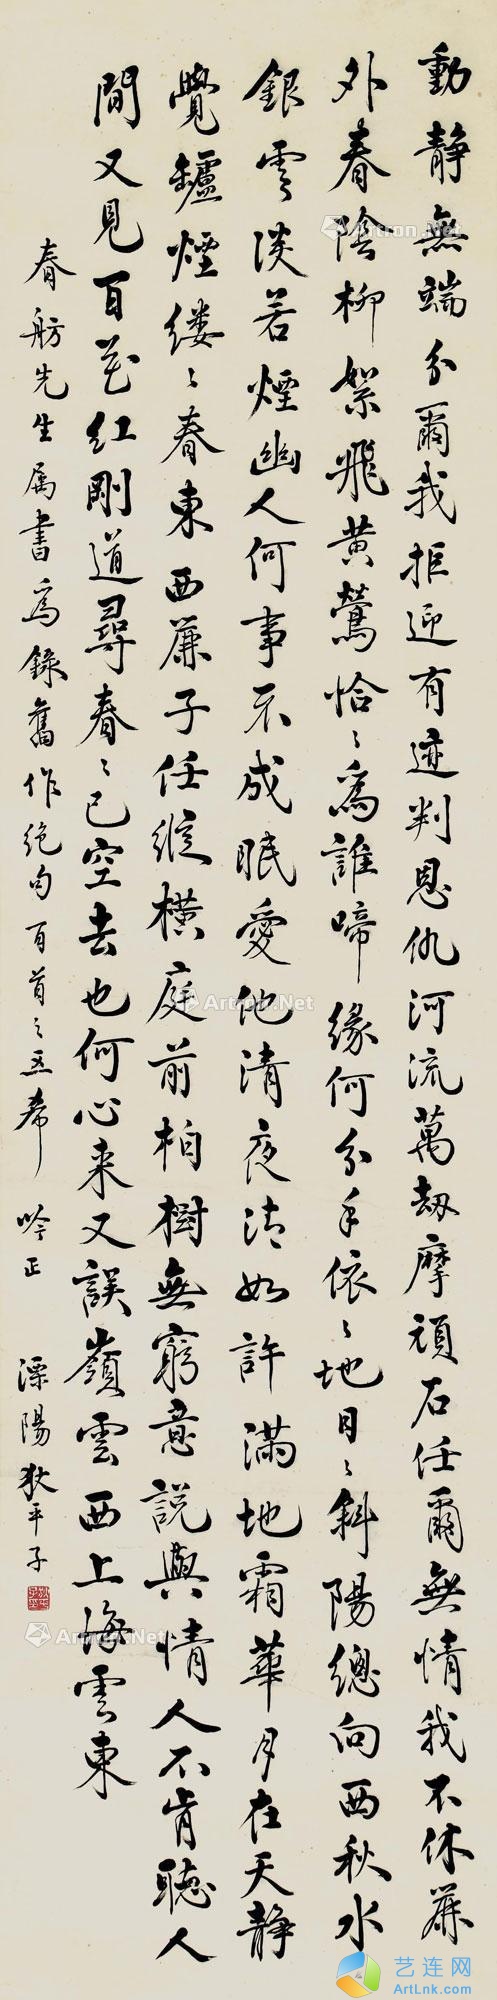 動靜無端分爾我拒迎有迹判恩仇河流萬劫摩頑石任爾無情我不休簾
外春陰柳絮飛黃鶯恰〻爲誰啼緣何分手依〻地日〻斜陽總向西秋水
銀雲淡若煙幽人何事不成眠愛他清夜清如許滿地霜華月在天靜
覺鑪煙縷〻春東西簾子任縱橫庭前柏樹無窮意說與情人不肯聽人
間又見百花紅剛道尋春〻已空去也何心来又誤嶺雲西上海雲東
春舫先生属書爲錄舊作絕句百首之五希
吟正
溧陽狄平子
Artron.Net
Artron.Net
Artron.Net
Artron.Net
艺连网
ArtLnk.com